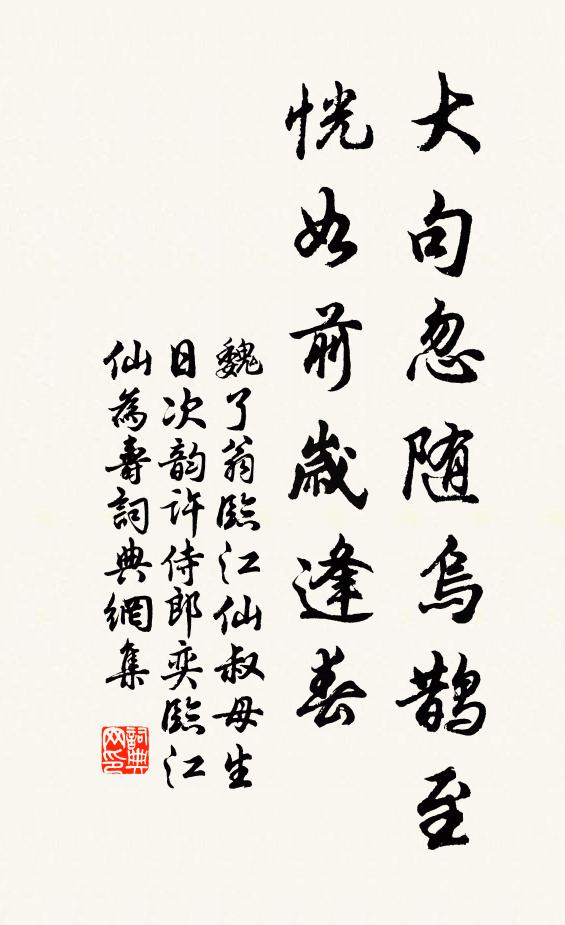 大句忽随烏鵲至
恍如前歲逢春
魏了翁臨江仙叔母生
日次韵許侍郎奕臨江
仙為壽詞典網集
詞典
网印